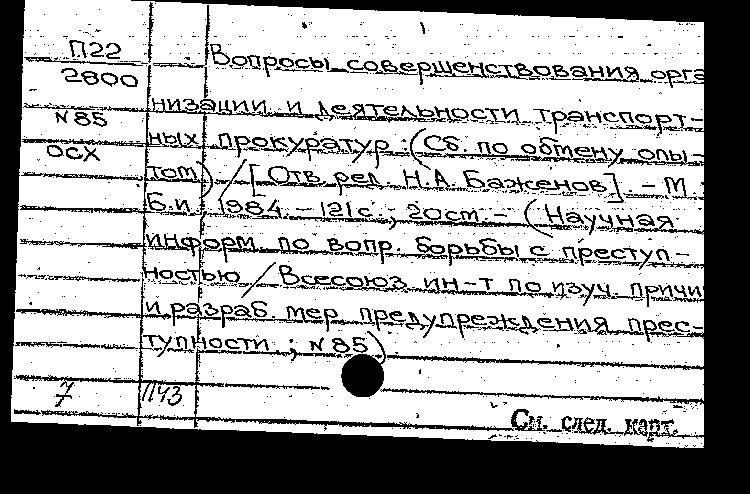 П22
2800
N85
ОСХ
Вопросы совершенствования орга
низации и деятельности транспорт-
ных прокуратур : (Сб. по обмену опы-
том) / [Отв. ред. Н.А. Баженов]. - М. :
Б.и., 1984. - 121 с.; 20 см. - (Научная
информ. по вопр. борьбы с преступ-
ностью / Всесоюз. ин-т по изуч. причи
и разраб. мер предупреждения прес-
тупности ; N85).
7 ПЧЗ
См. след. карт.